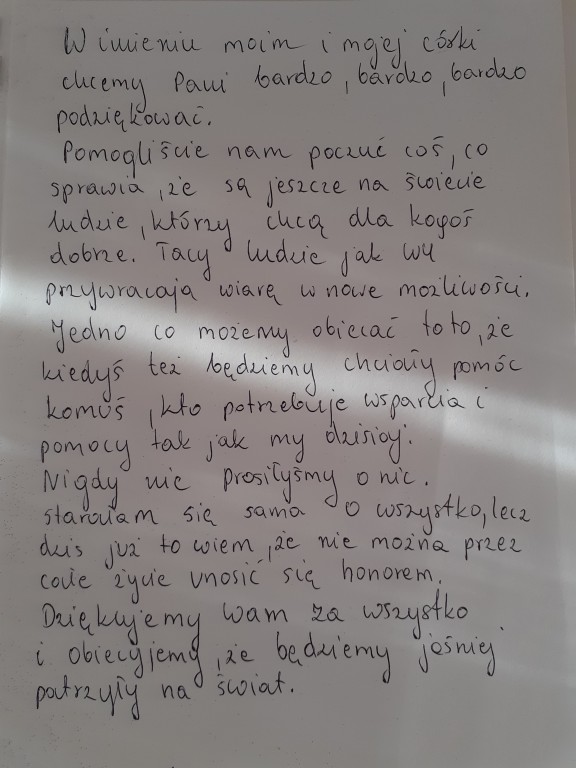 W imieniu moim i mojej córki
chcemy Pani bardzo, bardzo, bardzo
podziękować.
Pomogliście nam poczuć coś, co
sprawia, że są jeszcze na świecie
ludzie, którzy chcą dla kogoś
dobrze. Tacy ludzie jak Wy
przywracają wiarę w nowe możliwości.
Jedno co możemy obiecać to to, że
kiedyś też będziemy chciały pomóc
komuś, kto potrzebuje wsparcia i
pomocy tak jak my dzisiaj.
Nigdy nie prosiłyśmy o nic.
starałam się sama o wszystko, lecz
dziś już to wiem, że nie można przez
całe życie unosić się honorem.
Dziękujemy Wam za wszystko
i obiecujemy, że będziemy jaśniej
patrzyły na świat.